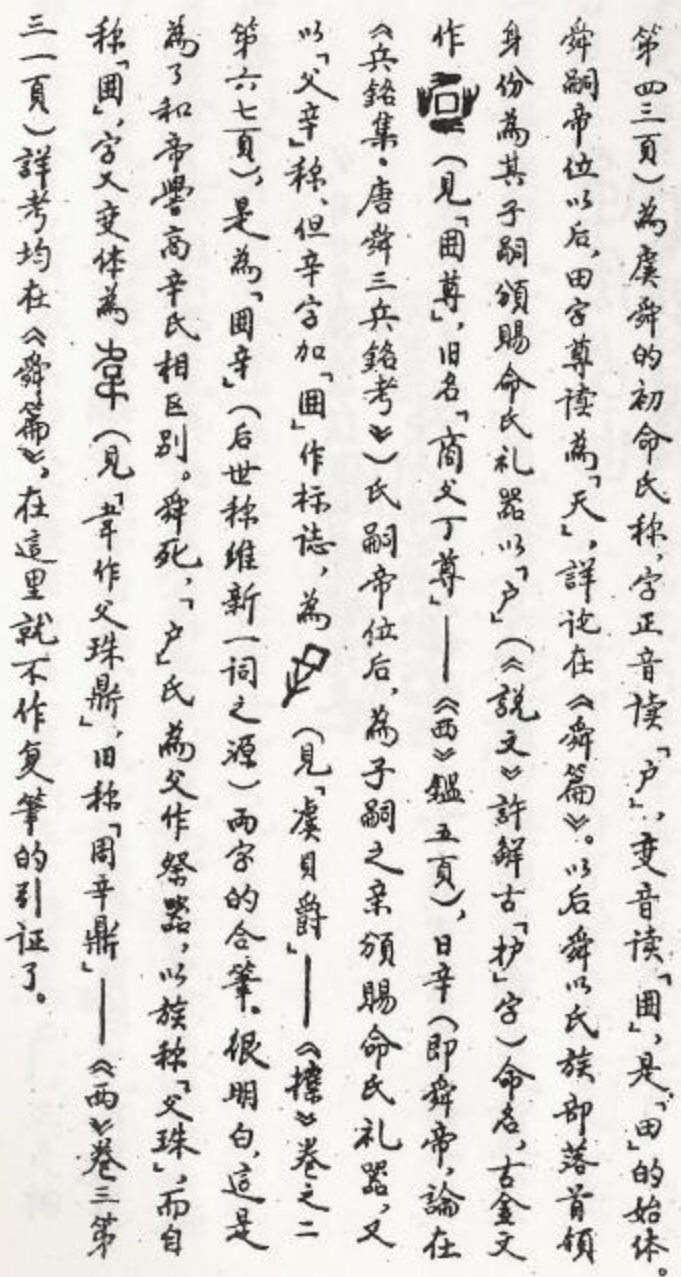 第四三頁）為虞舜的初命氏称，字正音读「户」，变音读「囲」，是「田」的始体。
舜嗣帝位以后，田字尊读為「天」，詳论在《舜篇》。以后舜以氏族部落首領
身份為其子嗣頒賜命氏礼器以「户」（《說文》許解古「护」字）命名，古金文
作（見「囲尊」，旧名「商父丁尊」——《西》鑑五頁），日辛（即舜帝，論在
《兵銘集·唐舜三兵銘考》）氏嗣帝位后，為子嗣之亲頒賜命氏礼器，又
以「父辛」称，但辛字加「囲」作标誌，為（見「虞貝爵」——《攈》卷之二
第六七頁），是為「囲辛」（后世称維新一词之源）两字的合筆。很明白，這是
為了和帝嚳高辛氏相区别。舜死，「户」氏為父作祭器，以族称「父珠」，而自
称「囲」，字又变体為（見「韋作父珠鼎」，旧称「周辛鼎」——《西》卷三第
三一頁）詳考均在《舜篇》，在這里就不作复筆的引证了。